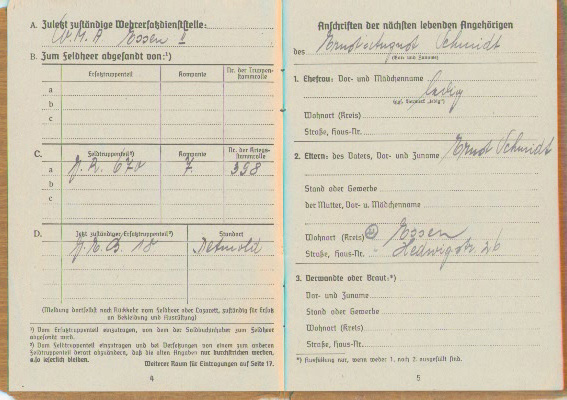 A. Zuletzt zuständige Wehrersatzdienststelle:
W. M. A Essen II
B. Zum Feldheer abgesandt von:¹)
Ersatztruppenteil Kompanie Nr. der Truppenstammrolle
a
b
c
C. Feldtruppenteil²) Kompanie Nr. der Kriegsstammrolle
a J. R. 670 7. 358
b
c
D. Jetzt zuständiger Ersatztruppenteil³) Standort
18 Detmold
(Meldung dortselbst nach Rückkehr vom Feldheer oder Lazarett, zuständig für Ersatz
an Bekleidung und Ausrüstung)
¹) Vom Ersatztruppenteil einzutragen, von dem der Soldbuchinhaber zum Feldheer
abgesandt wird.
²) Vom Feldtruppenteil einzutragen und bei Versetzungen von einem zum anderen
Feldtruppenteil derart abzuändern, daß die alten Angaben nur durchstrichen werden,
also leserlich bleiben.
Weiterer Raum für Eintragungen auf Seite 17.
4
Anschriften der nächsten lebenden Angehörigen
des Ernst August Schmidt
(Vor- und Zuname)
1. Ehefrau: Vor- und Mädchenname ledig
(ggf. Vermerk „ledig“)
Wohnort (Kreis)
Straße, Haus-Nr.
2. Eltern: des Vaters, Vor- und Zuname Ernst Schmidt
Stand oder Gewerbe
der Mutter, Vor- u. Mädchenname
Wohnort (Kreis) Essen
Straße, Haus-Nr. Hedwigstr. 26
3. Verwandte oder Braut:*)
Vor- und Zuname
Stand oder Gewerbe
Wohnort (Kreis)
Straße, Haus-Nr.
*) Ausfüllung nur, wenn weder 1. noch 2. ausgefüllt sind.
5